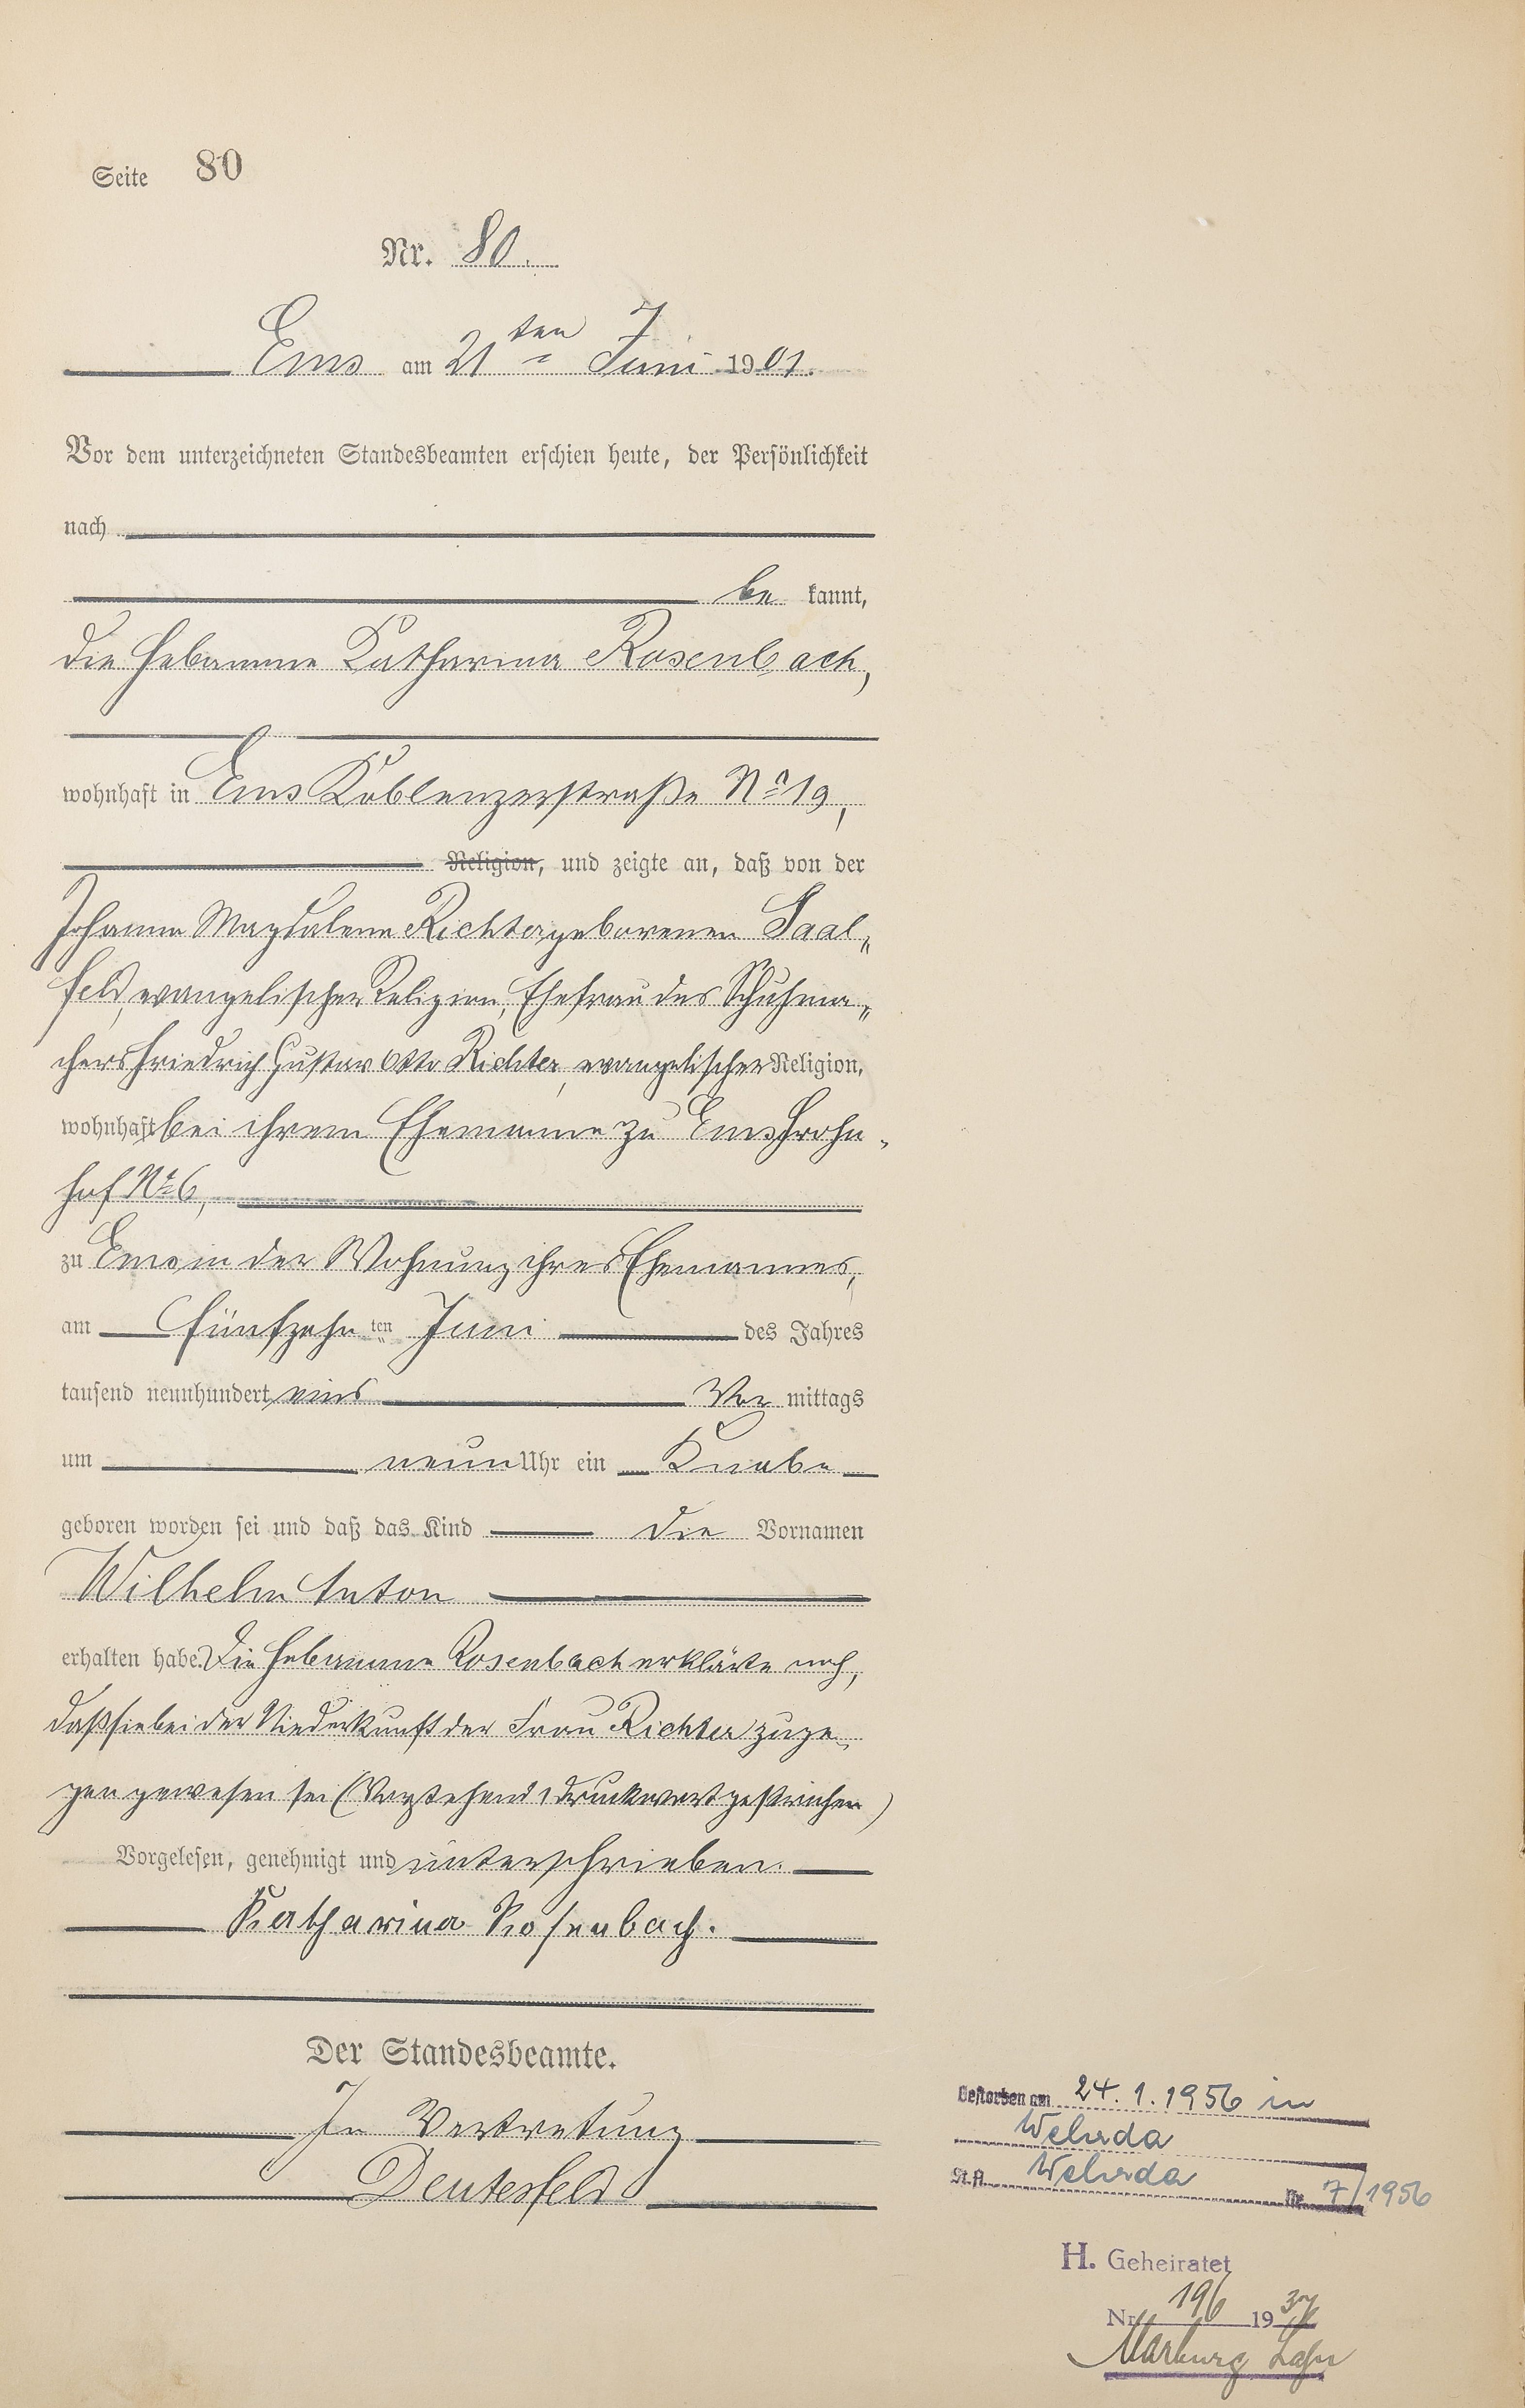 Seite 80
Nr. 80.
Ems am 21ten Juni 1901.
Vor dem unterzeichneten Standesbeamten erschien heute, der Persönlichkeit
nach
be kannt,
die Hebamme Katharina Rosenbach,
wohnhaft in Ems Koblenzerstraße No 19,
Religion, und zeigte an, daß von der
Johanna Magdalena Richter geborenen Saal„
feld, evangelischer Religion, Ehefrau des Schuhma„
chers Friedrich Gustav Otto Richter, evangelischer Religion,
wohnhaft bei ihrem Ehemanne zu Ems Frohn„
hof No 6,
zu Ems in der Wohnung ihres Ehemannes,
am fünfzehn ten Juni des Jahres
tausend neunhundert eins Vor mittags
um neun Uhr ein Knabe
geboren worden sei und daß das Kind die Vornamen
Wilhelm Anton
erhalten habe. Die Hebamme Rosenbach erklärte noch,
daß sie bei der Niederkunft der Frau Richter zuge„
gen gewesen sei (Vorstehend 1 Druckwort gestrichen)
Vorgelesen, genehmigt und unterschrieben.
Katharina Rosenbach.
Der Standesbeamte.
In Vertretung
Deutesfeld
Gestorben am 24.1.1956 in
Wehrda
St.A. Wehrda
Nr. 7/1956
H. Geheiratet
Nr. 196 19
Marburg Lahn